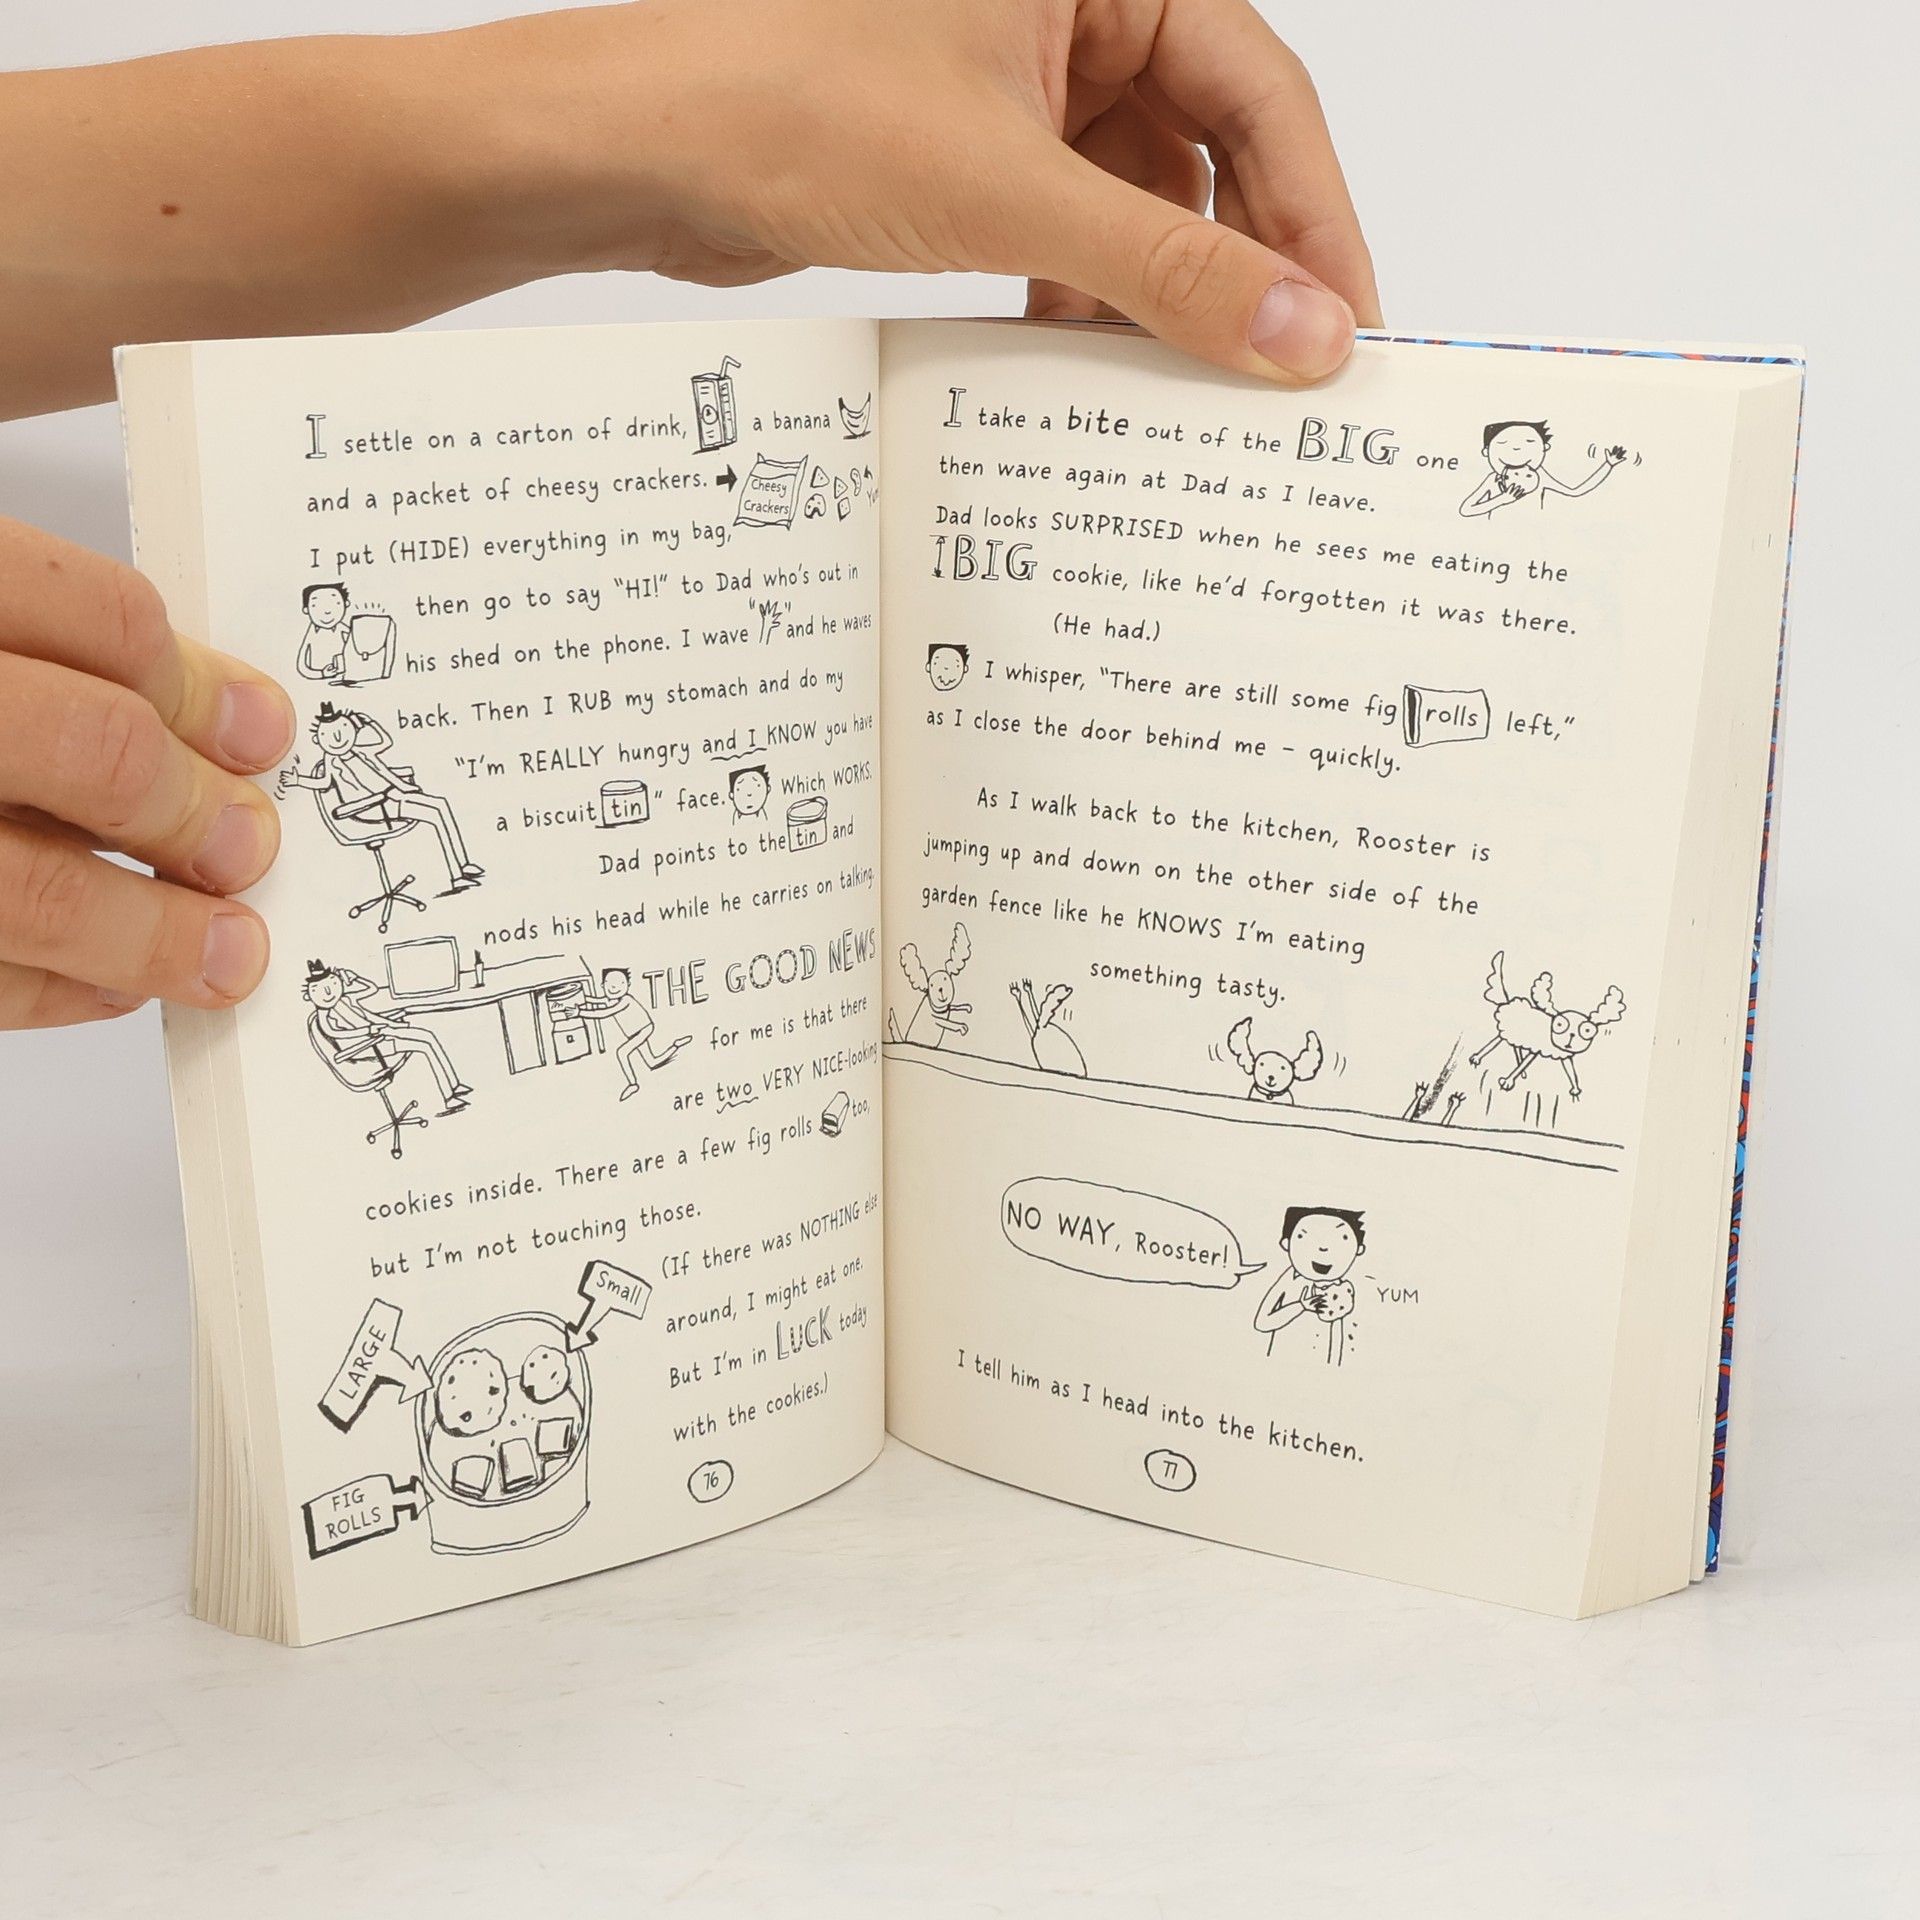 I settle on a carton of drink, a banana
and a packet of cheesy crackers.
Cheesy
Crackers
Yum
I put (HIDE) everything in my bag,
then go to say "HI!" to Dad who's out in
his shed on the phone. I wave " " and he waves
back. Then I RUB my stomach and do my
"I'm REALLY hungry and I KNOW you have
a biscuit tin" face. Which WORKS.
Dad points to the tin and
nods his head while he carries on talking.
THE GOOD NEWS
for me is that there
are two VERY NICE-looking
cookies inside. There are a few fig rolls too,
but I'm not touching those.
(If there was NOTHING else
around, I might eat one.
But I'm in LUCK today
with the cookies.)
Small
LARGE
FIG
ROLLS
76
I take a bite out of the BIG one
then wave again at Dad as I leave.
Dad looks SURPRISED when he sees me eating the
BIG cookie, like he'd forgotten it was there.
(He had.)
I whisper, "There are still some fig rolls left,"
as I close the door behind me – quickly.
As I walk back to the kitchen, Rooster is
jumping up and down on the other side of the
garden fence like he KNOWS I'm eating
something tasty.
NO WAY, Rooster!
YUM
I tell him as I head into the kitchen.
77